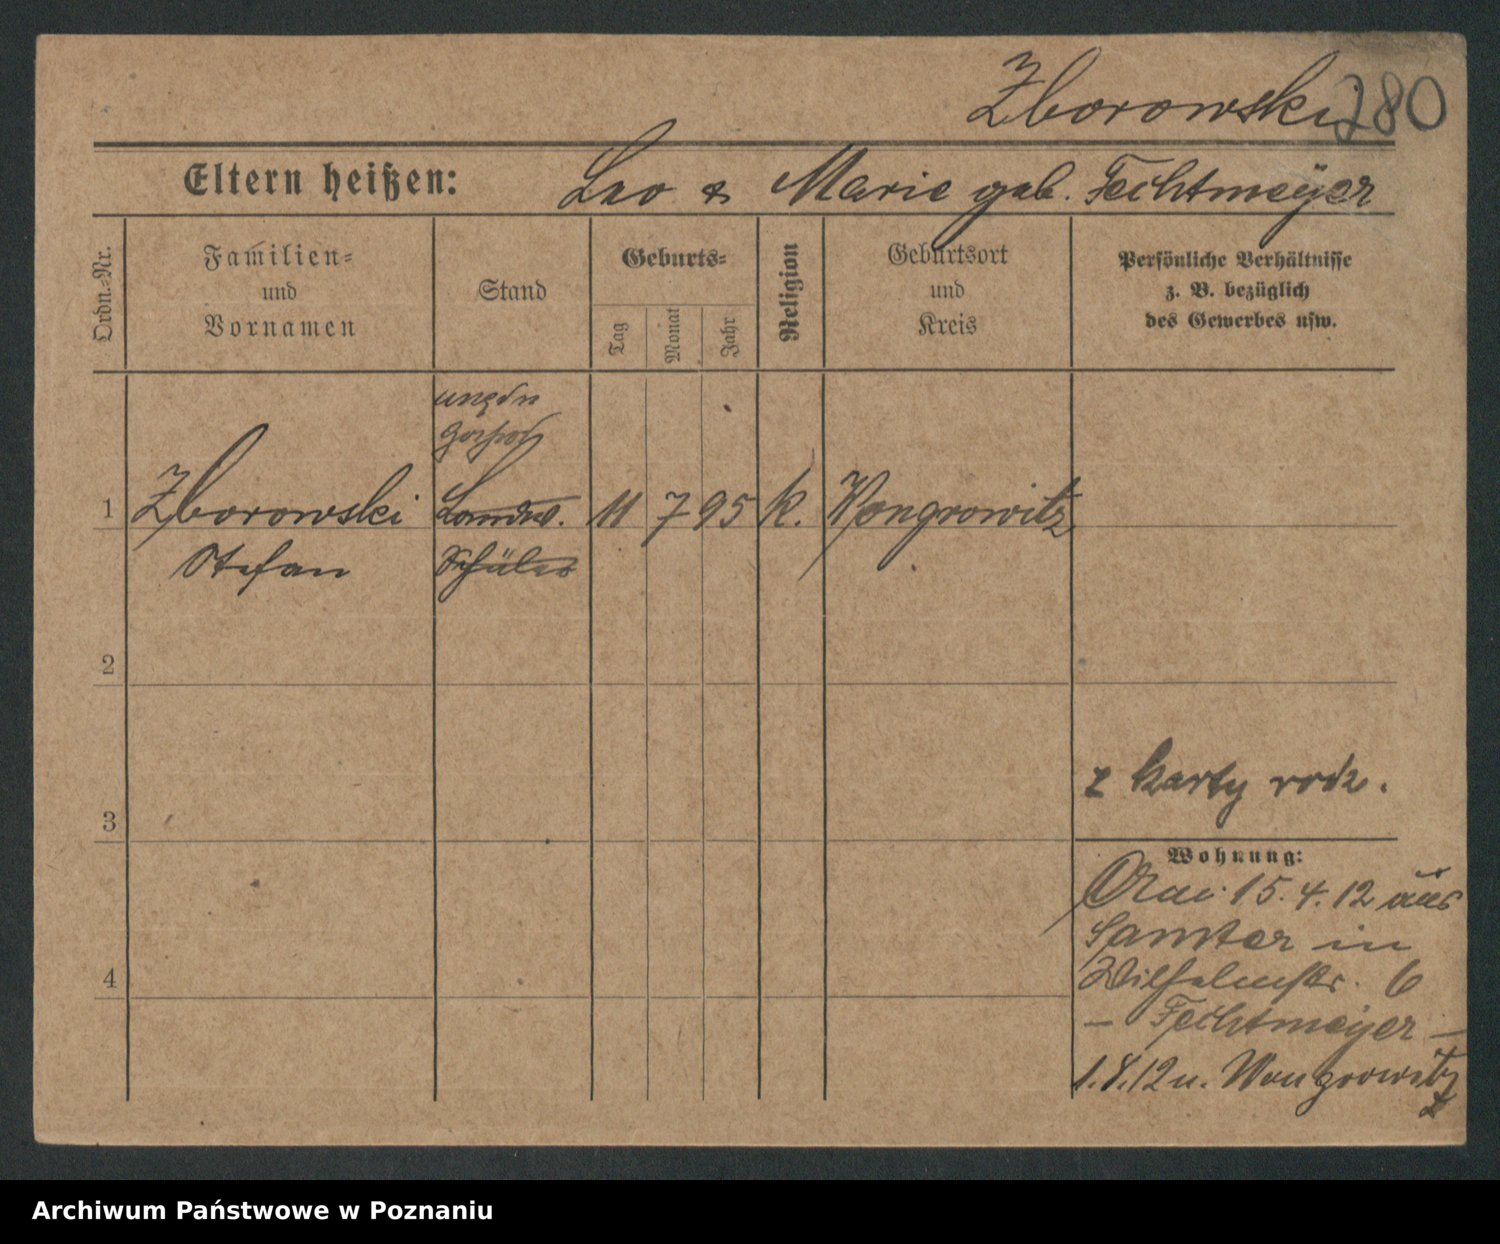 Zborowski 280
Eltern heißen: Leo & Marie geb. Fechtmeyer
Ordn.-Nr.
Familien-
und
Vornamen
Stand
Geburts-
Tag
Monat
Jahr
Religion
Geburtsort
und
Kreis
Persönliche Verhältnisse
z. B. bezüglich
des Gewerbes usw.
1 Zborowski 11 7 95 k. Wongrowitz
Stefan Schüler
2
3
4
z karty rodz.
Wohnung:
15.4.12 aus
Samter in
Wilhelmstr. 6
– Fechtmeyer –
1.8.12 n. Wongrowitz
Archiwum Państwowe w Poznaniu